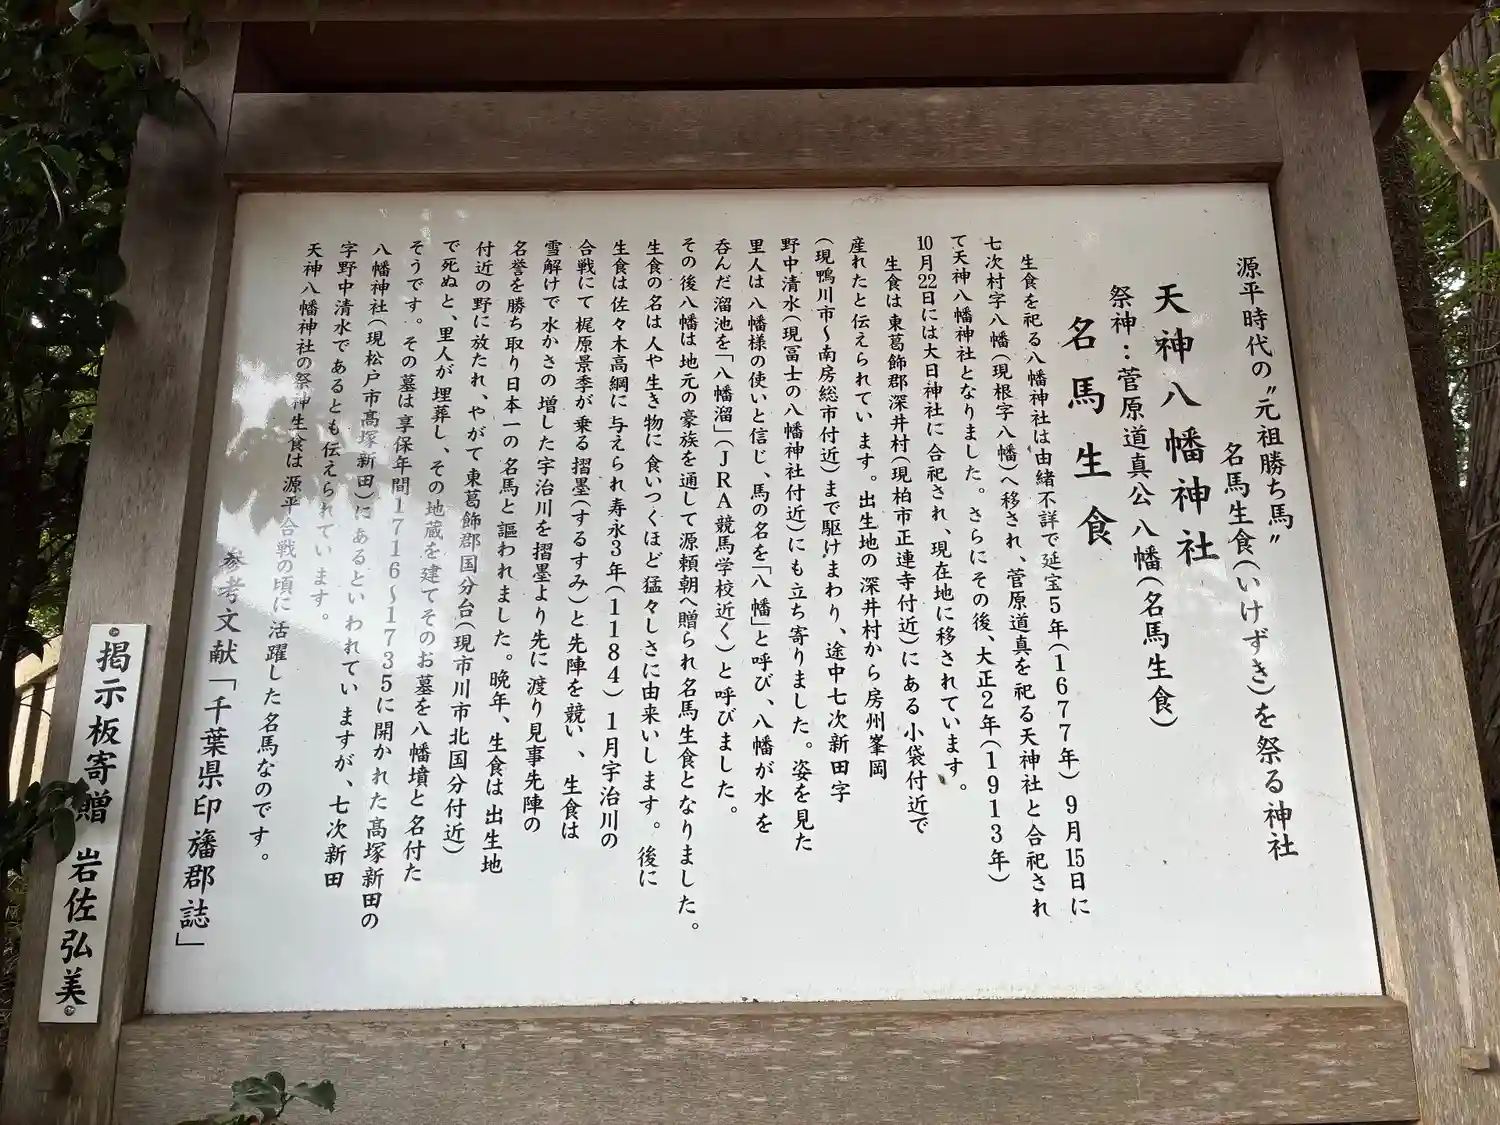 源平時代の〝元祖勝ち馬〟
名馬生食(いけずき)を祭る神社
天神八幡神社
祭神：菅原道真公 八幡(名馬生食)
名馬生食
生食を祀る八幡神社は由緒不詳で延宝5年(1677年)9月15日に
七次村字八幡(現根字八幡)へ移され、菅原道真を祀る天神社と合祀され
て天神八幡神社となりました。さらにその後、大正2年(1913年)
10月22日には大日神社に合祀され、現在地に移されています。
生食は東葛飾郡深井村(現柏市正連寺付近)にある小袋付近で
産れたと伝えられています。出生地の深井村から房州峯岡
(現鴨川市〜南房総市付近)まで駆けまわり、途中七次新田字
野中清水(現冨士の八幡神社付近)にも立ち寄りました。姿を見た
里人は八幡様の使いと信じ、馬の名を「八幡」と呼び、八幡が水を
呑んだ溜池を「八幡溜」(JRA競馬学校近く)と呼びました。
その後八幡は地元の豪族を通して源頼朝へ贈られ名馬生食となりました。
生食の名は人や生き物に食いつくほど猛々しさに由来いします。後に
生食は佐々木高綱に与えられ寿永3年(1184)1月宇治川の
合戦にて梶原景季が乗る摺墨(するすみ)と先陣を競い、生食は
雪解けで水かさの増した宇治川を摺墨より先に渡り見事先陣の
名誉を勝ち取り日本一の名馬と謳われました。晩年、生食は出生地
付近の野に放たれ、やがて東葛飾郡国分台(現市川市北国分付近)
で死ぬと、里人が埋葬し、その地蔵を建てそのお墓を八幡墳と名付た
そうです。その墓は享保年間1716〜1735に開かれた高塚新田の
八幡神社(現松戸市高塚新田)にあるといわれていますが、七次新田
字野中清水であるとも伝えられています。
天神八幡神社の祭神生食は源平合戦の頃に活躍した名馬なのです。
参考文献「千葉県印旛郡誌」
掲示板寄贈 岩佐弘美